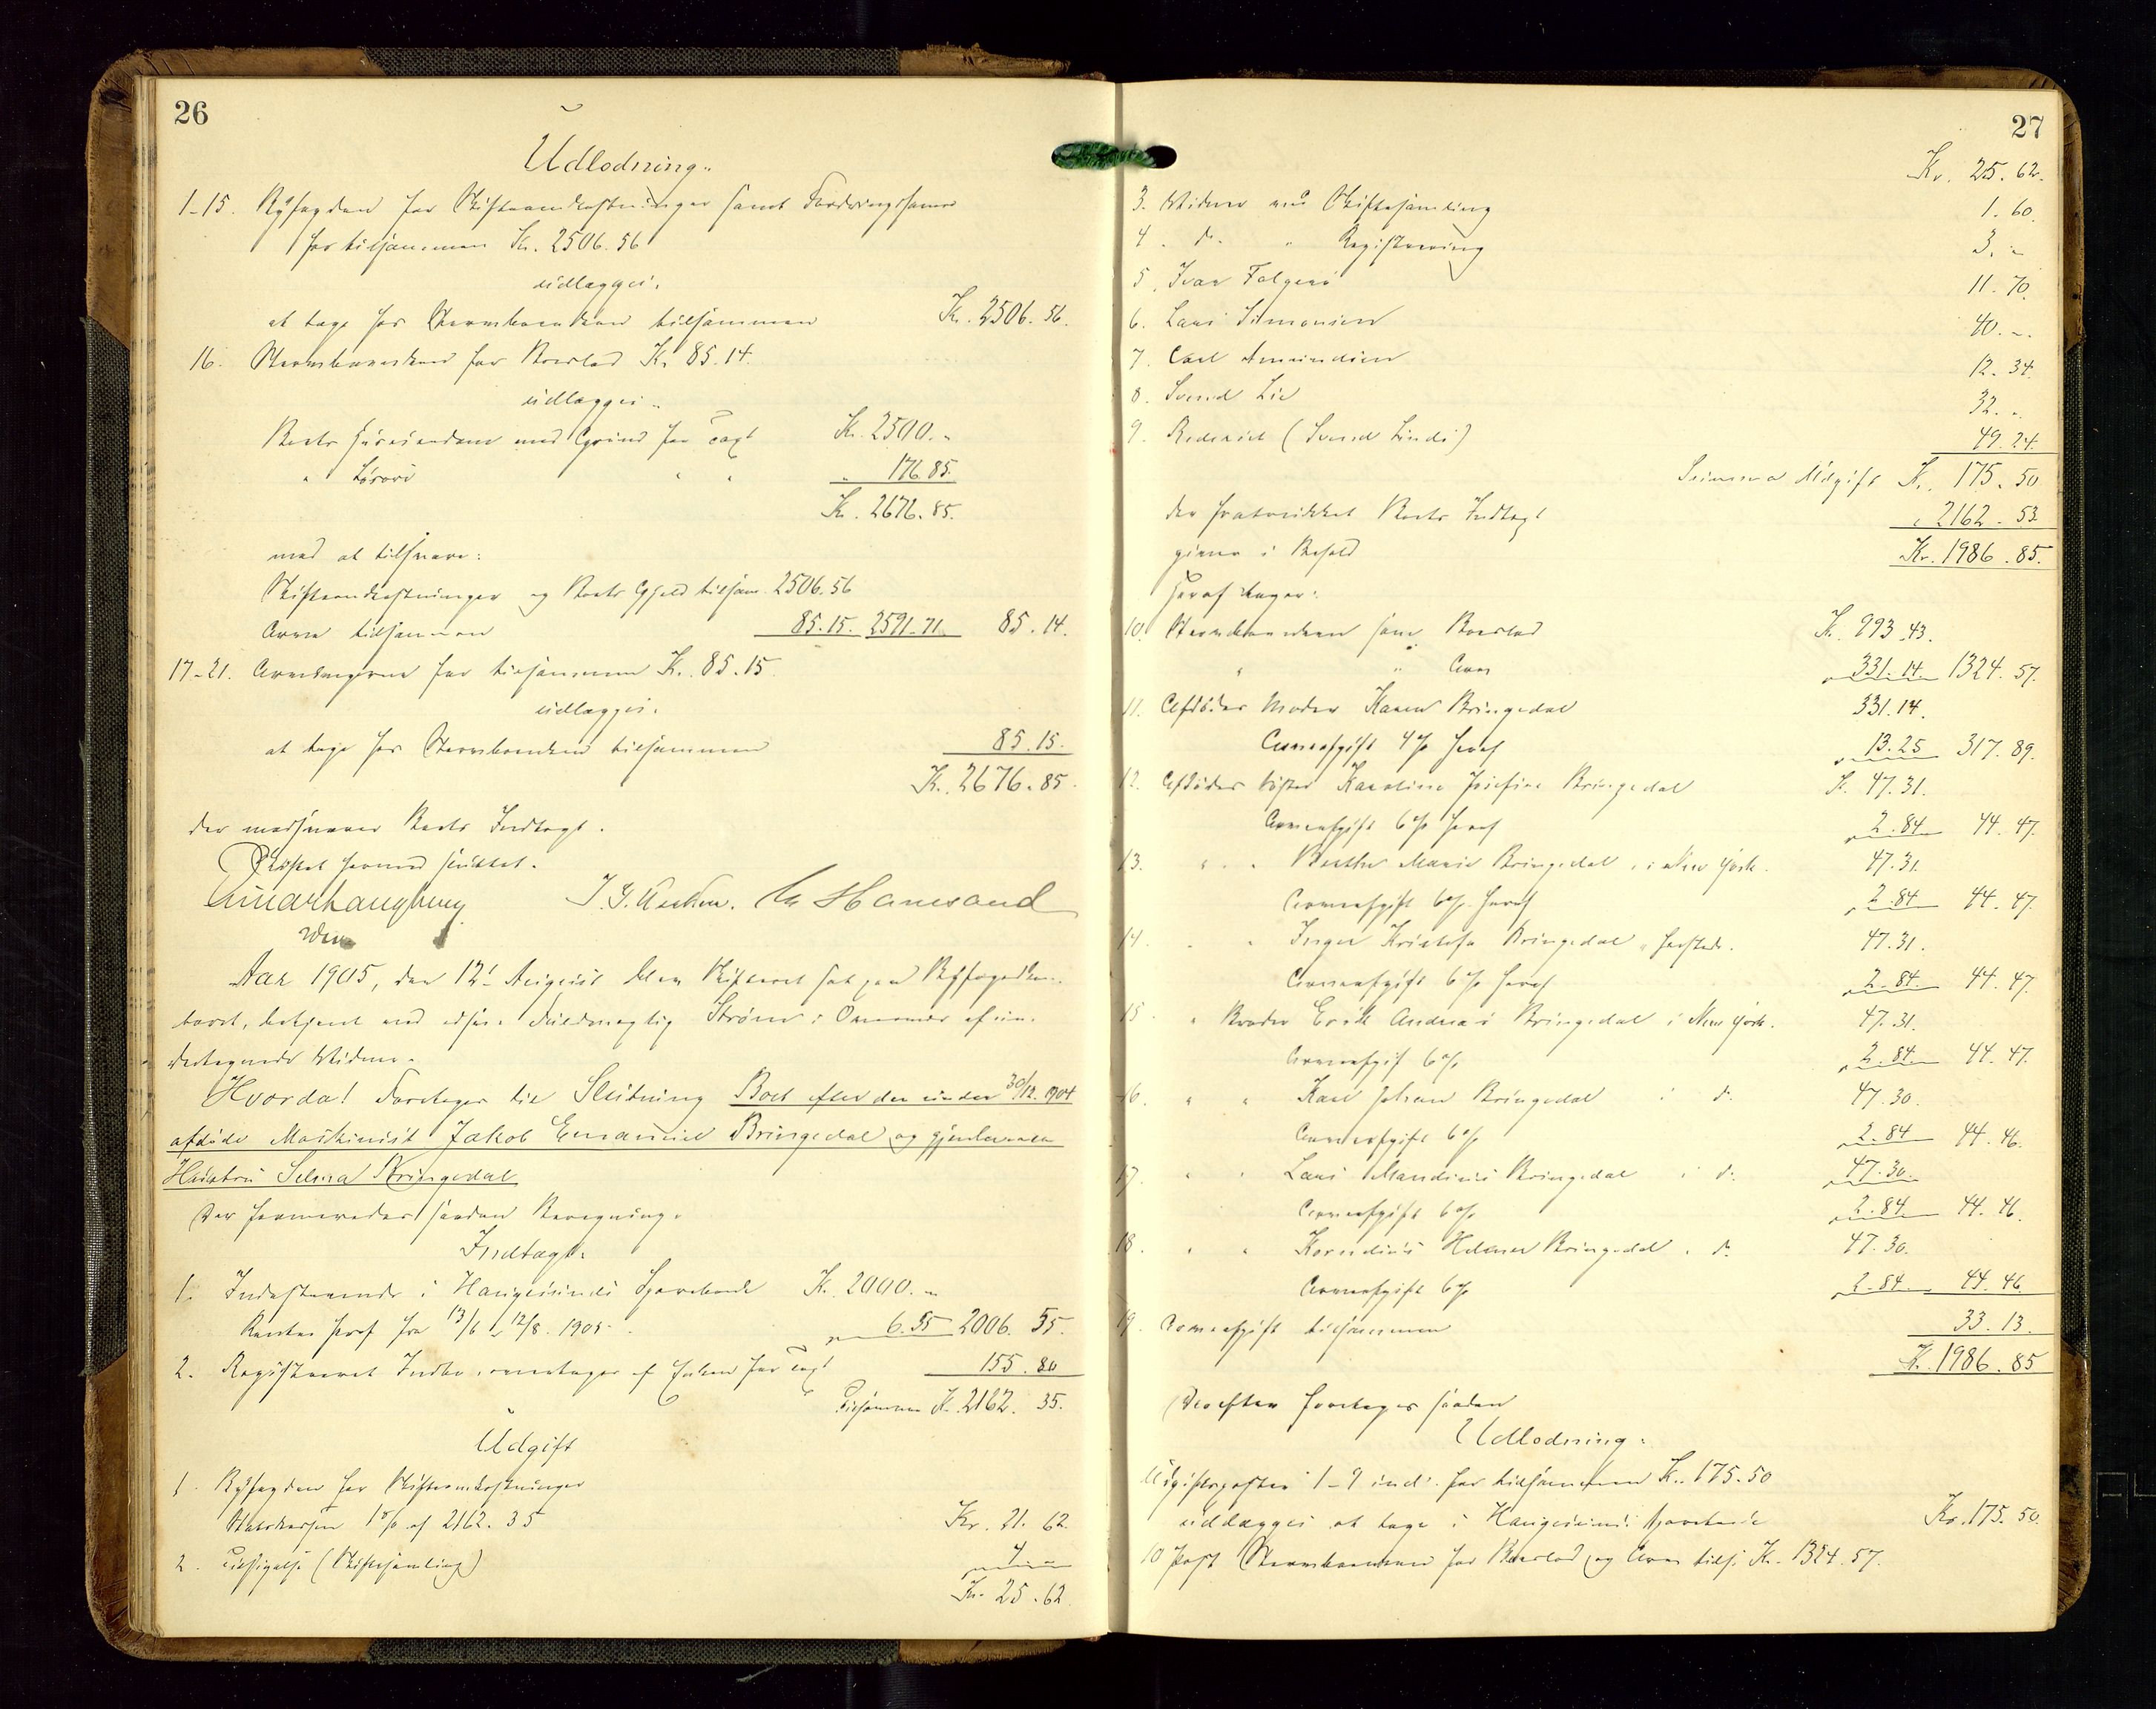 26
Udlodning.
1-15. Byfogden for Skifteomkostninger samt Fordringshaverne
for tilsammen Kr. 2506.56
udlægges:
at tage hos Stervboenken tilsammen Kr. 2506.56.
16. Stervboenken for Boeslod Kr. 85.14.
udlægges:
Boets Huseiendom med Grund for Taxt Kr. 2500.-
" Løsøre " " " 176.85.
Kr. 2676.85.
mod at tilsvare:
Skifteomkostninger og Boets Gjeld tilsam. 2506.56
Arven tilsammen 85.15. 2591.71. 85.14.
17-21. Arvingerne for tilsammen Kr. 85.15
udlægges:
at tage hos Stervboenken tilsammen 85.15.
Kr. 2676.85.
der modsvarer Boets Indtægt.
Skiftet hermed sluttet.
Aar 1905, den 12' August blev Skifteret sat paa Byfogedkon-
toret, betjent ved edsv. Fuldmægtig Strøm i Overvær af un-
dertegnede Vidner.
Hvorda! Foretoges til Slutning Boet efter den under 30/12 1904
afdøde Maskinist Jakob Emanuel Bringedal og gjenlevende
Hustru Selma Bringedal
Der fremlagdes saadan Beregning:
Indtægt:
1. Indestaaende i Haugesunds Sparebank Kr. 2000.-
Renter heraf fra 13/6 - 12/8 1905 6.55 2006.55.
2. Registreret Indbo, overtages af Enken for Taxt 155.80
Tilsammen Kr. 2162.35.
Udgift
1. Byfogden for Skifteomkostninger
Statskassen 1 % af 2162.35 Kr. 21.62.
2. Tilsigelse (Skiftesamling) 4.-
Kr. 25.62.
27
Kr. 25.62.
3. Vidner ved Skiftesamling 1.60.
4. do. " Registrering 3.-
5. Ivar Folgerø 11.70.
6. Lars Simonsen 40.-
7. Carl Amundsen 12.34.
8. Svend Lie 32.-
9. Rederiet (Svend Linds) 49.24.
Summa Udgift Kr. 175.50
der fratrukket Boets Indtægt " 2162.53
giver i Behold Kr. 1986.85.
Heraf tager:
10. Stervboenken som Boeslod Kr. 993.43.
" " Arv " 331.14 1324.57.
11. Afdødes Moder Karen Bringedal 331.14.
Arveafgift 4 % heraf " 13.25 317.89.
12. Afdødes Søster Karoline Josefine Bringedal Kr. 47.31.
Arveafgift 6 % heraf " 2.84 44.47.
13. " " Berthe Marie Bringedal, i New York. 47.31.
Arveafgift 6 % heraf " 2.84 44.47.
14. " " Inger Kristofa Bringedal, sammesteds. 47.31.
Arveafgift 6 % heraf " 2.84 44.47.
15. " Broder Erik Andreas Bringedal i New York. 47.31.
Arveafgift 6 % " 2.84 44.47.
16. " " Karl Johan Bringedal i do. 47.30.
Arveafgift 6 % " 2.84 44.46.
17. " " Lars Mandius Bringedal i do. 47.30.
Arveafgift 6 % " 2.84 44.46.
18. " " Kornelius Helmer Bringedal i do. 47.30.
Arveafgift 6 % 2.84 44.46
19. Arveafgift tilsammen 33.13.
Kr. 1986.85
Derefter foretoges saadan
Udlodning:
Udgiftsposter 1-9 incl. for tilsammen Kr. 175.50
udlægges at tage i Haugesunds Sparebank Kr. 175.50.
10 Post Stervboenken for Boeslod og Arv tils. Kr. 1324.57.